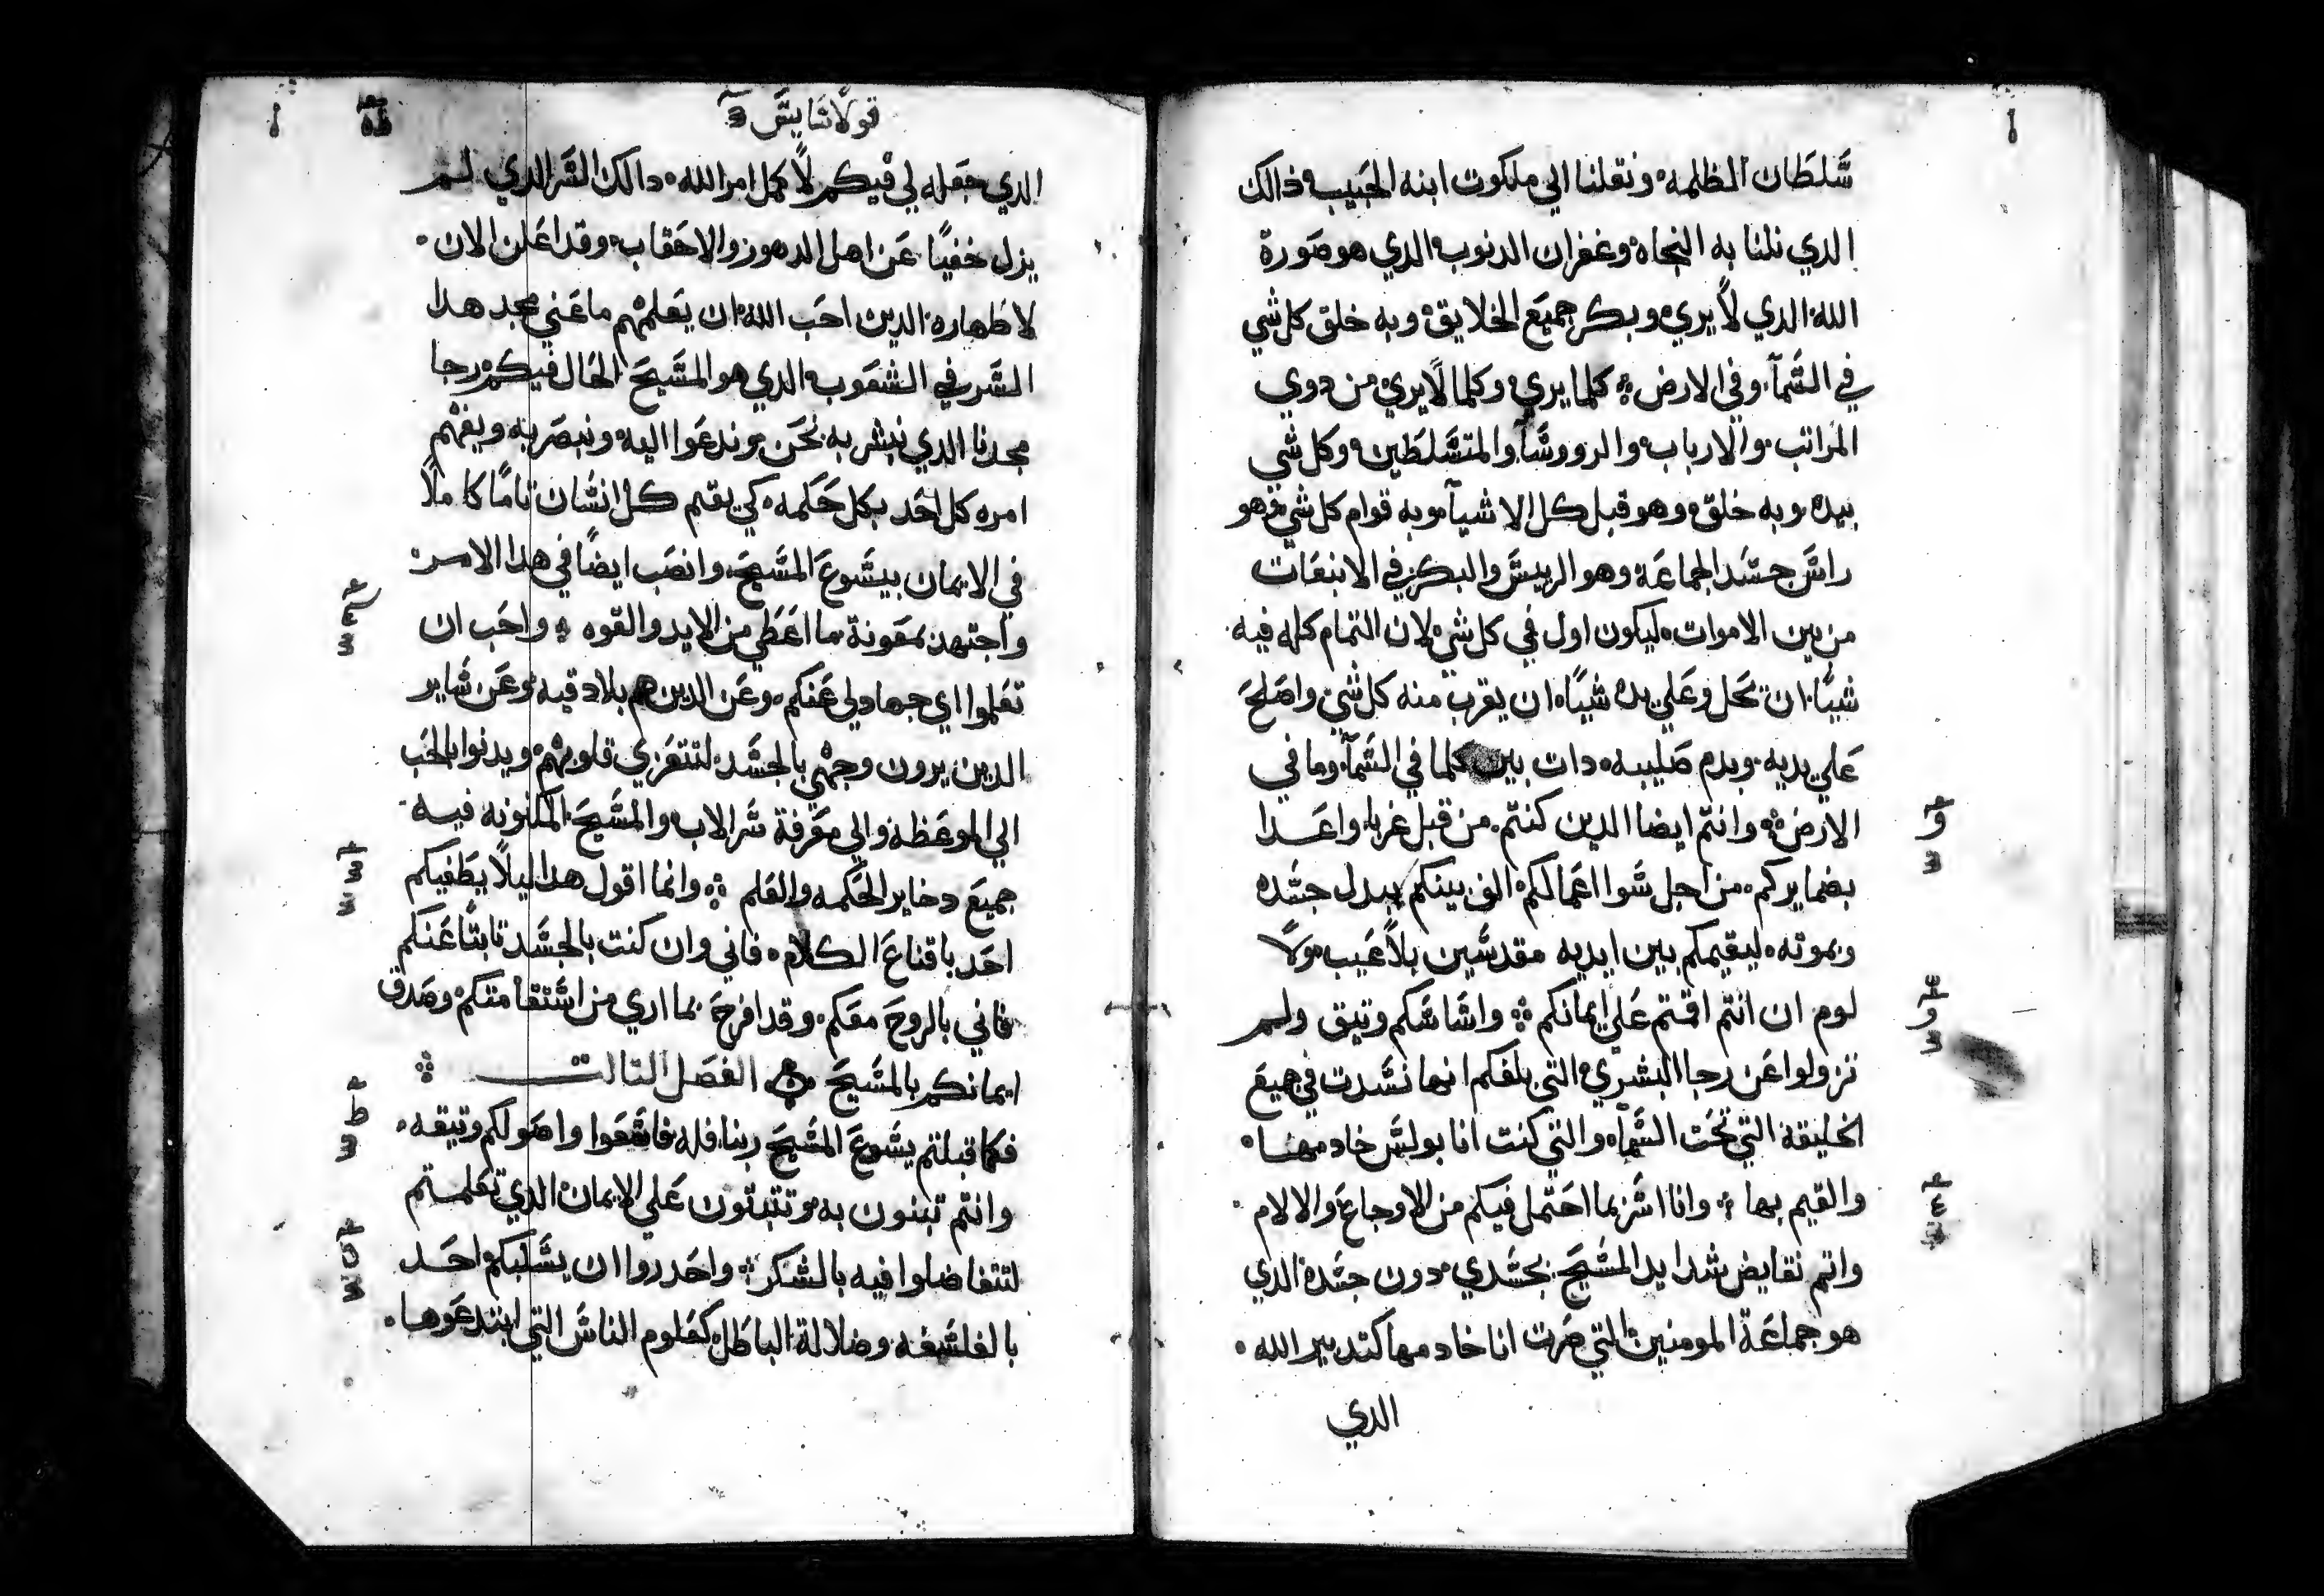 سلطان الظلمه ونقلنا الي ملكوت ابنه الحبيب ذالك
الدي نلنا به النجاه وغفران الدنوب الدي هو صورة
الله الدي لا يري وبكر جميع الخلايق وبه خلق كل شي
في السمآ وفي الارض كلما يري وكلما لا يري من دوي
المراتب والارباب والرووسآ والمتسلطين وكل شي
بيده وبه خلق وهو قبل كل الاشيآ وبه قوام كل شي وهو
راس جسد الجماعة وهو الرييس والبكر في الانبعات
من بين الاموات ليكون اول في كل شي لان التمام كله فيه
شيًا ان تحل وعلي يده شيًا ان يقرب منه كل شي واصلح
علي يديه وبدم صليبه دات بين كلما في السمآ وما في
الارض وانتم ايضا الدين كنتم من قبل غربا واعدا
بضمايركم من اجل سوا اعمالكم الف بينكم ببدل جسده
وبموته ليقيمكم بين ايديه مقدسين بلا عيب ولا
لوم ان انتم اقمتم علي ايمانكم واساسكم وتيق ولم
تزولوا عن رجا البشري التي بلغكم انها نشدت في جميع
الخليقة التي تحت السمآ والتي كنت انا بولس خادمها
والقيم بها وانا اسر بما احتمل فيكم من الاوجاع والالام
واتم نقايص شدايد المسيح بجسدي دون جسده الدي
هو جماعة المومنين التي صرت انا خادمها كتدبير الله
الدي
قولاسايس
الدي جعله لي فيكم لا كمل امر الله دالك السر الدي لم
يزل خفيًا عن اهل الدهور والاحقاب وقد اعلن الان
لاطهاره الدين احب الله ان يعلمهم ما غني مجد هدا
السر في الشعوب الدي هو المسيح الحال فيكم رجا
مجدنا الدي نبشر به نحن وندعوا اليه ونبصر به ويفهم
امره كل احد بكل حكمه كي يقيم كل انسان تامًا كاملًا
في الايمان بيسوع المسيح وانصب ايضًا في هدا الامر
واجتهد بمعونة ما اعطي من الايد والقوه واحب ان
تعلموا اي جهاد لي عنكم وعن الدين هم بلادقيه وعن ساير
الدين يرون وجهي بالجسد لتتعزي قلوبهم ويدنوا بالحب
الي الموعظه والي معرفة سر الاب والمسيح المكنونه فيه
جميع دخاير الحكمه والعلم وانما اقول هدا ليلا يطغيكم
احد باقناع الكلام فاني وان كنت بالجسد نايًا عنكم
فاني بالروح معكم وقد افرح بما اري من استقامتكم وصدق
ايمانكم بالمسيح الفصل التالت
فكما قبلتم يسوع المسيح ربنا فله فاسعوا واصولكم وتيقه
وانتم تبنون به وتتبتون علي الايمان الدي تعلمتم
لتتفاضلوا فيه بالشكر واحدروا ان يسلبكم احد
بالفلسفه وضلالة الباطل كعلوم الناس التي ابتدعوها